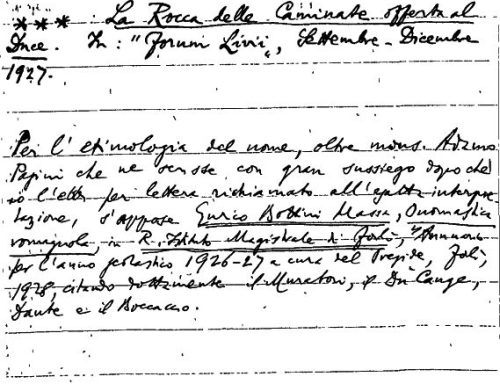 *** La Rocca delle Caminate offerta al
Duce. In: "Forum Livii", Settembre-Dicembre
1927.
Per l'etimologia del nome, oltre mons. Adamo
Papini che ne scrisse con gran sussiego dopo che
io l'ebbi per lettera richiamato all'esatta interpre-
tazione, s'appose Enrico Bottini Massa, Onomastica
romagnola, in R. Istituto Magistrale di Forlì, "Annuario
per l'anno scolastico 1926-27 a cura del Preside, Forlì,
1928, citando dottamente il Muratori, il Du Cange,
Dante e il Boccaccio.